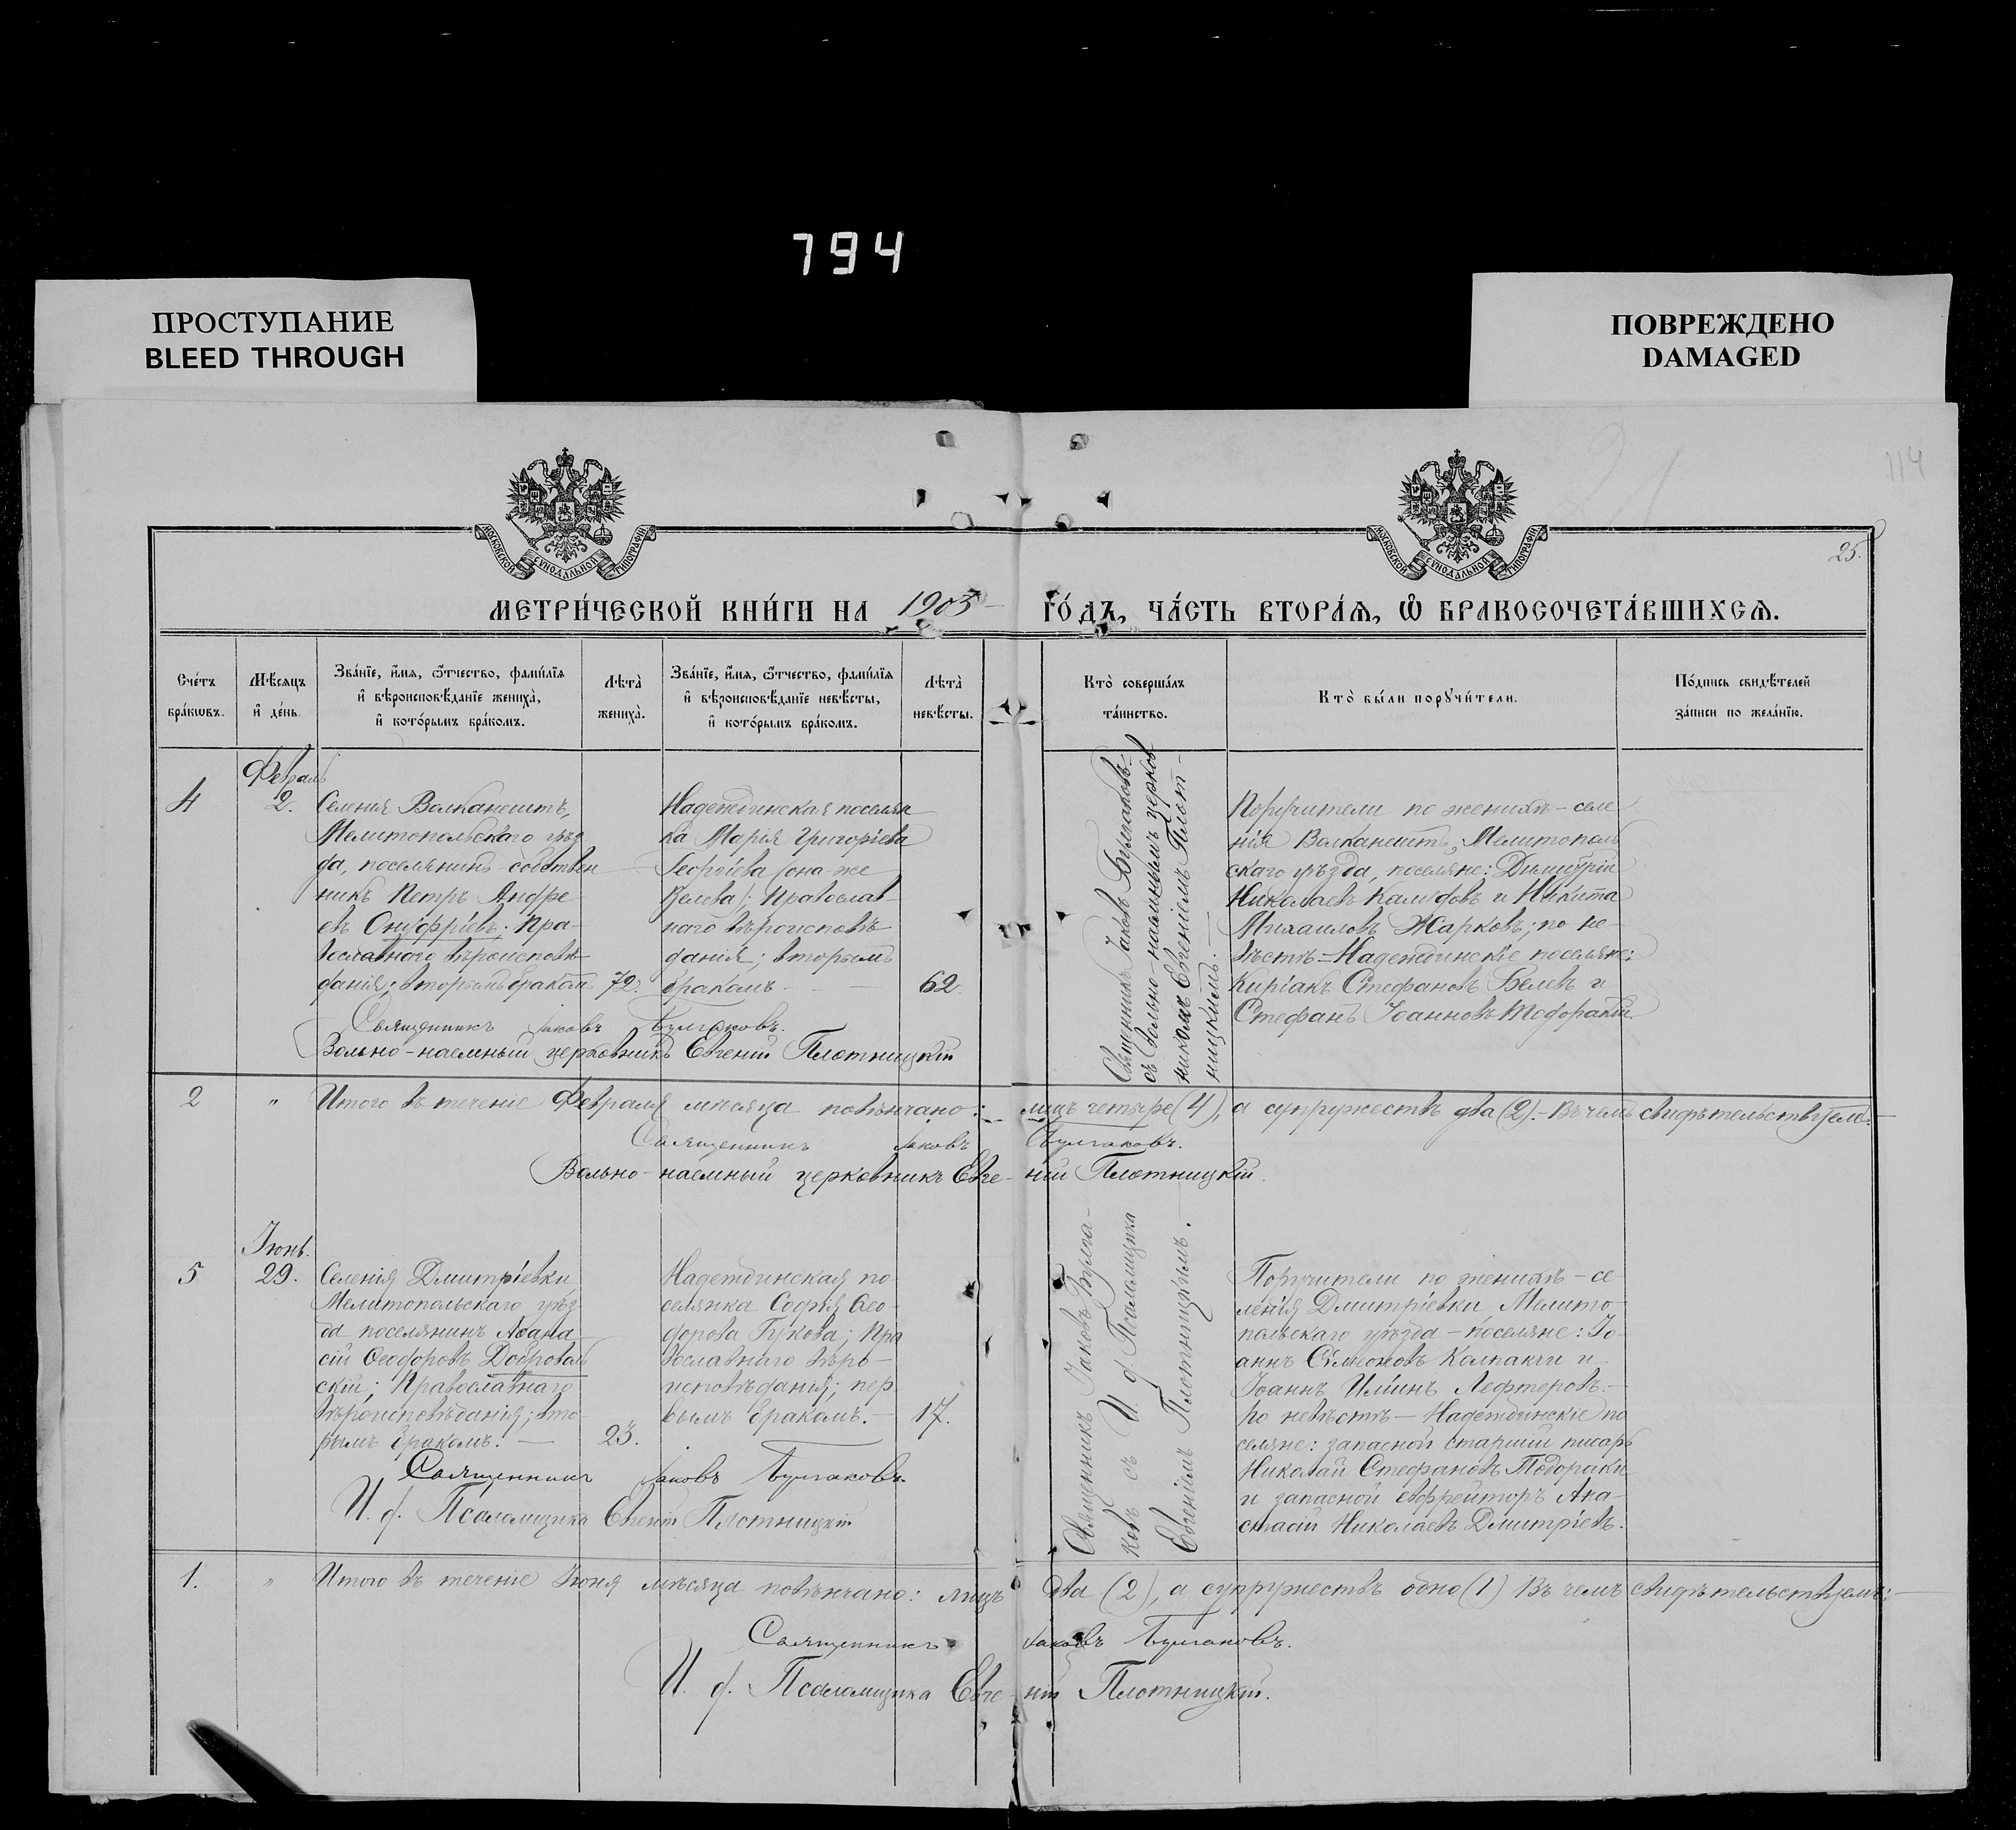 794
ПРОСТУПАНИЕ
BLEED THROUGH
ПОВРЕЖДЕНО
DAMAGED
114
25.
МОСКОВСКОЙ СѴНОДАЛЬНОЙ ТИПОГРАФІИ
МОСКОВСКОЙ СѴНОДАЛЬНОЙ ТИПОГРАФІИ
МЕТРИ́ЧЕСКОЙ КНИ́ГИ НА 1903 ГО́ДЪ, ЧА́СТЬ ВТОРА́Ѧ, Ѡ БРАКОСОЧЕТА́ВШИХСѦ.
Сче́тъ
бра́кѡвъ.
Мѣсяцъ
и де́нь.
Зва́нїе, и́мя, ѻ҆́тчество, фами́лїя
и вѣроисповѣ́данїе жениха̀,
и кото́рымъ бра́комъ.
Лѣта̀
жениха̀.
Зва́нїе, и́мя, ѻ҆́тчество, фами́лїя
и вѣроисповѣ́данїе невѣ́сты,
и кото́рымъ бра́комъ.
Лѣта̀
невѣ́сты.
Кто̀ соверша́лъ
та́инство.
Кто̀ бы́ли порꙋчи́тели.
По́дпись свидѣ́телей
за́писи по жела́нїю.
4
Февраль
2.
Селенія Волканештъ,
Мелитопольскаго уѣз
да, поселянинъ-собствен
никъ Петръ Андре
евъ Онуфріевъ; Пра-
вославного вѣроисповѣ-
данія; вторымъ бракомъ
72.
Надеждинская поселян
ка Марія Григорíева
Георгіева (она-же
Келева); Православ-
наго вѣроисповѣ-
данія; вторымъ
бракомъ - —
62.
Священникъ Іаковъ Булгаковъ
съ вольно-наемнымъ церков
никомъ Евгеніемъ Плот-
ницкимъ. —
Поручители по женихѣ - селе
нія Волканештъ, Мелитополь
скаго уѣзда, поселяне: Димитрій
Николаевъ и Никита
Михаиловъ Жарковъ; по не-
вѣстѣ - Надеждинскіе поселяне:
Киріакъ Стефановъ Белевъ и
Стефанъ Іоанновъ Тодораки.
Священникъ Іаковъ Булгаковъ.
Вольно-наемный церковникъ Евгеній Плотницкій
2 " Итого въ теченіе Февраля мѣсяца повѣнчано: лицъ четыре (4), а супружествъ два (2). - Въ чемъ свидѣтельствуемъ:
Священникъ Іаковъ Булгаковъ.
Вольно-наемный церковникъ Евге-ній Плотницкій.
5
Іюнь.
29.
Селенія Дмитріевки
Мелитопольскаго уѣз-
да поселянинъ Аѳана-
сій Ѳеодоровъ Добровль
скій; Православнаго
вѣроисповѣданія; вто-
рымъ бракомъ. —
23.
Надеждинская по-
селянка Софія Ѳео-
дорова Гукова; Пра
вославнаго вѣро-
исповѣданія; пер
вымъ бракомъ. -
17.
Священникъ Іаковъ Булга-
ковъ съ И. д. Псаломщика
Евгеніемъ Плотницкимъ. —
Поручители по женихѣ - се-
ленія Дмитріевки, Мелито-
польскаго уѣзда - поселяне: Іо-
аннъ Сѵмеоновъ Колпакчи и
Іоаннъ Ильинъ Лефтеровъ. -
по невѣстѣ - Надеждинскіе по
селяне: запасной старшій писарь
Николай Стефановъ Тодораки
и запасной ефрейторъ Ана-
стасій Николаевъ Дмитріевъ.
Священникъ Іаковъ Булгаковъ.
И. д. Псаломщика Евгеній Плотницкій
1. " Итого въ теченіе Іюня мѣсяца повѣнчано: лицъ два (2), а супружествъ одно (1) Въ чемъ свидѣтельствуемъ:
Священникъ Іаковъ Булгаковъ.
И. д. Псаломщика Евге-ній Плотницкій.